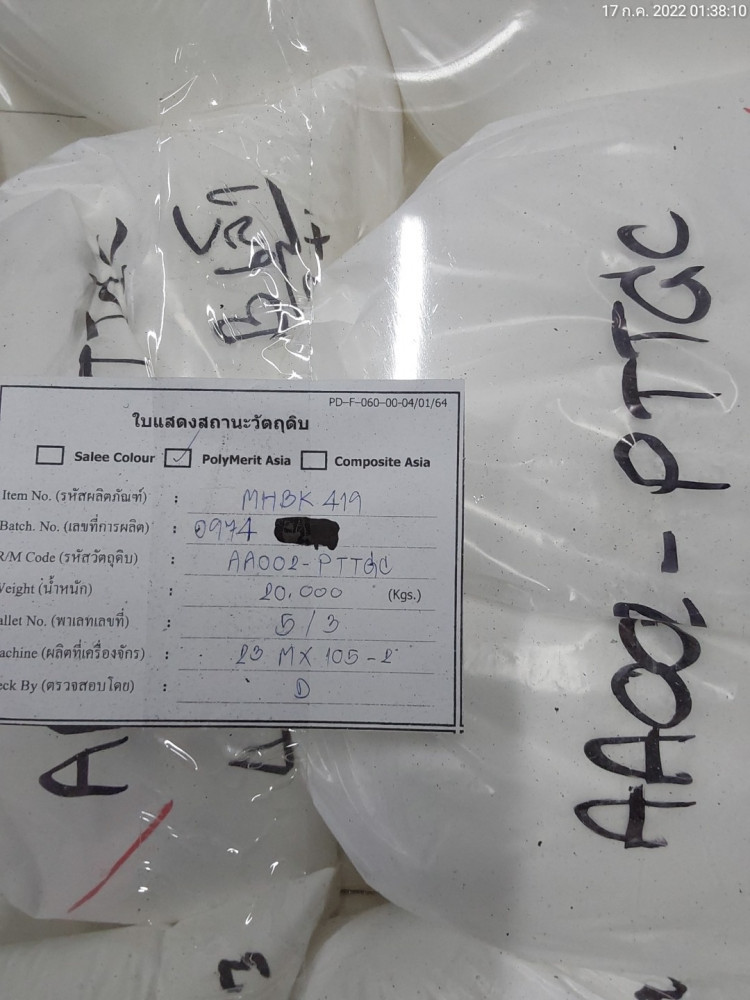 17 ก.ค. 2022 01:38:10
PD-F-060-00-04/01/64
ใบแสดงสถานะวัตถุดิบ
Salee Colour PolyMerit Asia Composite Asia
Item No. (รหัสผลิตภัณฑ์) : MHBK 419
Batch. No. (เลขที่การผลิต) : 0974
R/M Code (รหัสวัตถุดิบ) : AA002-PTTGC
Weight (น้ำหนัก) : 20.000 (Kgs.)
allet No. (พาเลทเลขที่) : 5/3
achine (ผลิตที่เครื่องจักร) : 23 MX 105-2
eck By (ตรวจสอบโดย) : D
AA002-PTTGC
3